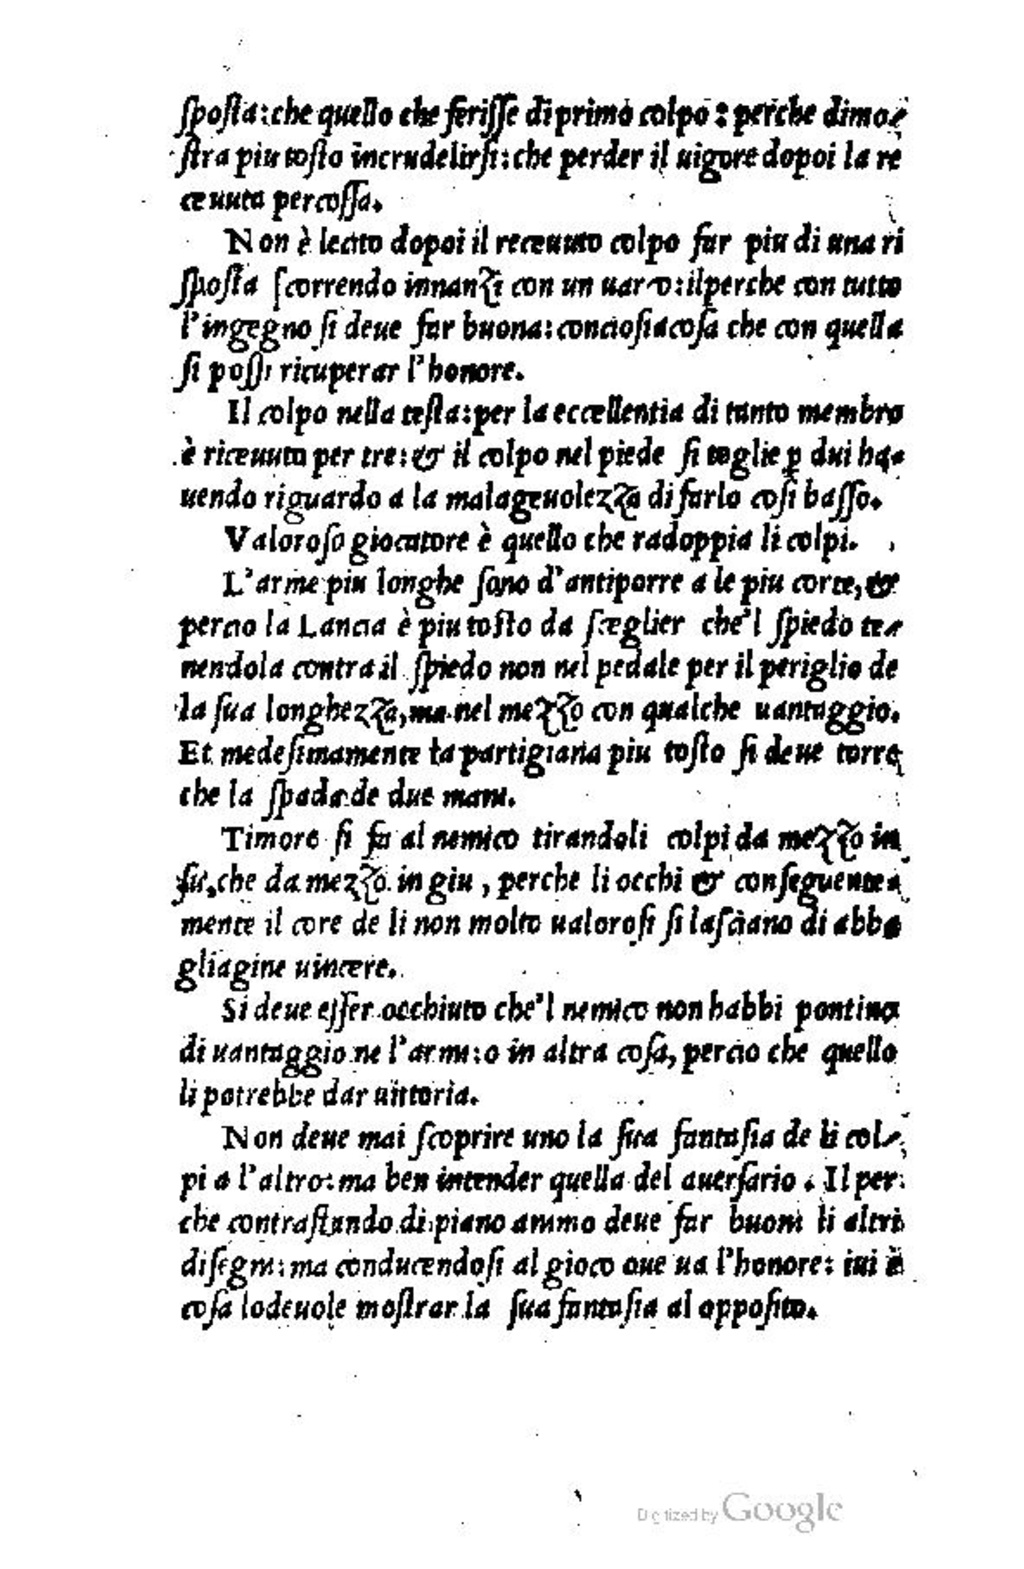 sposta:che quello che ferisse di primo colpo: perche dimo-
stra piu tosto incrudelirsi:che perder il uigore dopoi la re
ceuuta percossa.
Non è lecito dopoi il receuuto colpo far piu di una ri
sposta scorrendo innanzi con un uarco:ilperche con tutto
l'ingegno si deue far buona:conciosiacosa che con quella
si possi ricuperar l'honore.
Il colpo nella testa:per la eccellentia di tanto membro
è riceuuto per tre:& il colpo nel piede si toglie ꝑ dui ha-
uendo riguardo a la malageuolezza di farlo cosi basso.
Valoroso giocatore è quello che radoppia li colpi.
L'arme piu longhe sono d'antiporre a le piu corte,&
percio la Lancia è piu tosto da sceglier che'l spiedo te-
nendola contra il spiedo non nel pedale per il periglio de
la sua longhezza,ma nel mezzo con qualche uantaggio.
Et medesimamente la partigiana piu tosto si deue torre
che la spada de due mani.
Timore si fa al nemico tirandoli colpi da mezzo in
su,che da mezzo in giu, perche li occhi & conseguente-
mente il core de li non molto ualorosi si lasciano di abba
gliagine uincere.
Si deue esser occhiuto che'l nemico non habbi pontino
di uantaggio ne l'armi:o in altra cosa, percio che quello
li potrebbe dar uittoria.
Non deue mai scoprire uno la sua fantasia de li col-
pi a l'altro:ma ben intender quella del auersario. Il per
che contrastando di piano animo deue far buoni li altri
disegni:ma conducendosi al gioco oue ua l'honore: iui è
cosa lodeuole mostrar la sua fantasia al opposito.
Digitized by Google